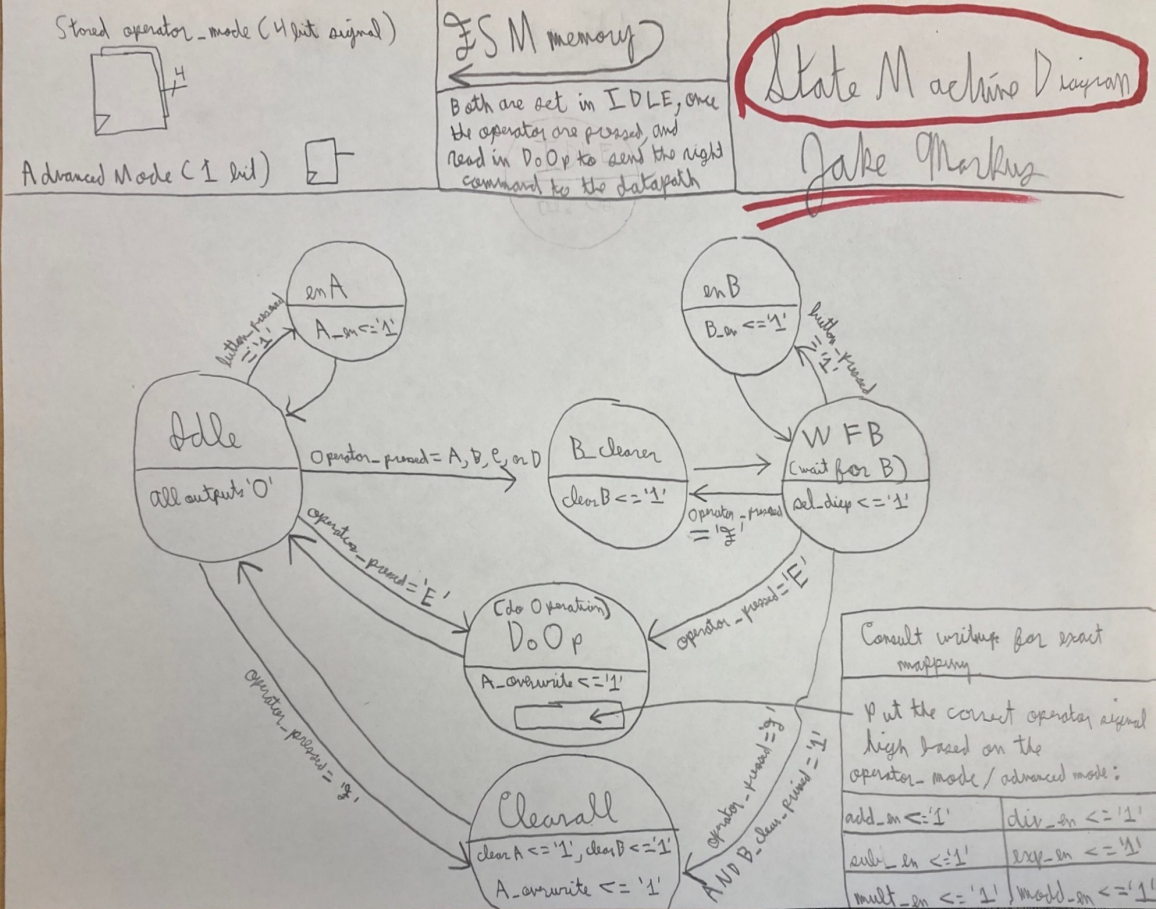 Stored operator_mode (4 bit signal)
4
Advanced Mode (1 bit)
FSM memory
Both are set in IDLE, once
the operator are pressed, and
read in DoOp to send the right
command to the datapath
State Machine Diagram
Jake Markus
enA
A_en <= '1'
button_pressed
= '1'
enB
B_en <= '1'
button_pressed
= '1'
Idle
all outputs '0'
Operator_pressed = A, B, C, or D
B_clearer
clearB <= '1'
WFB
(wait for B)
sel_disp <= '1'
Operator_pressed
= 'F'
operator_pressed = 'E'
operator_pressed = 'E'
(do Operation)
DoOp
A_overwrite <= '1'
operator_pressed = 'F'
operator_pressed = 'F'
AND B_clear_primed = '1'
Clearall
clearA <= '1', clearB <= '1'
A_overwrite <= '1'
Consult writeup for exact
mapping
Put the correct operator signal
high based on the
operator_mode / advanced mode:
add_en <= '1'
div_en <= '1'
sub_en <= '1'
exp_en <= '1'
mult_en <= '1'
modd_en <= '1'